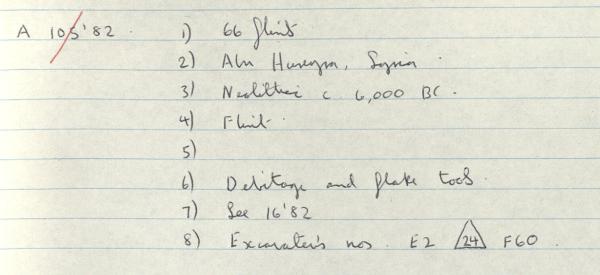 A 105'82. 1) 66 flint
2) Abu Hureyra, Syria.
3) Neolithic c 6,000 BC.
4) Flint.
5)
6) Debitage and flake tools.
7) See 16'82
8) Excavater's nos. E2 24 F60.